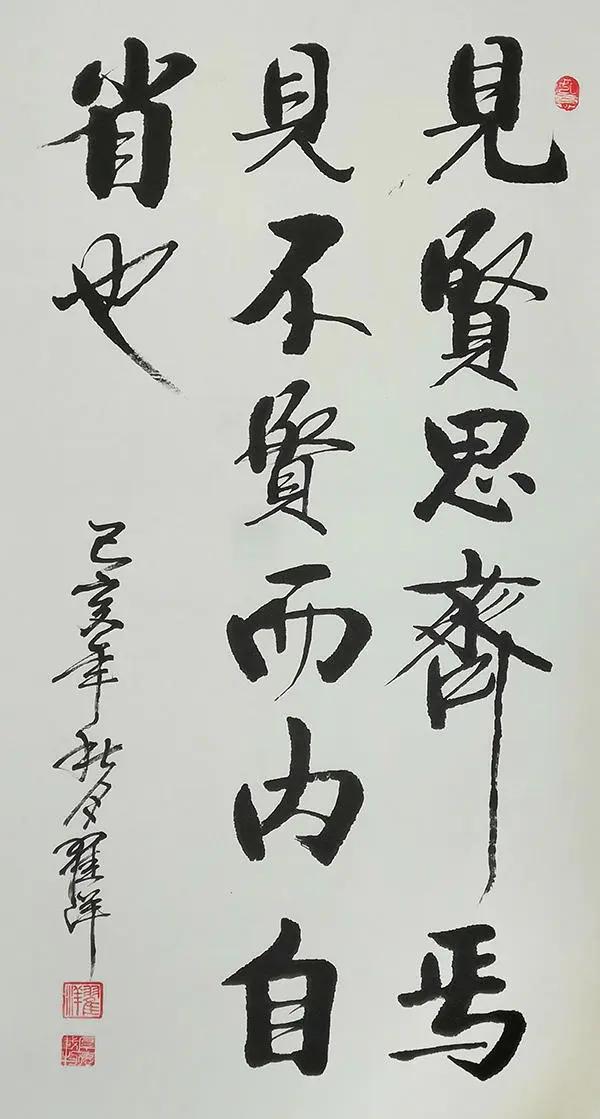 見賢思齊焉
見不賢而内自
省也
己亥年秋月翟洋
翟洋